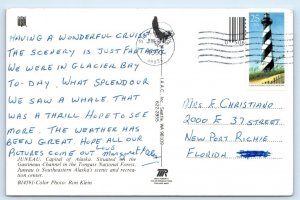 HAVING A WONDERFUL CRUISE
THE SCENERY IS JUST FANTASTIC
WE WERE IN GLACIER BAY
TO-DAY. WHAT SPLENDOUR
WE SAW A WHALE THAT
WAS A THRILL HOPE TO SEE
MORE. THE WEATHER HAS
BEEN GREAT. HOPE ALL OUR
PICTURES COME OUT LOVE
JUNEAU, Capital of Alaska. Situated in the
Gastineau Channel in the Tongass National Forest,
Juneau is Southeastern Alaska's scenic and recrea-
tion center.
Color Photo: Ron Klein
25
MRS F CHRISTIANO
2000 E 37 STREET
NEW PORT RICHIE
FLORIDA